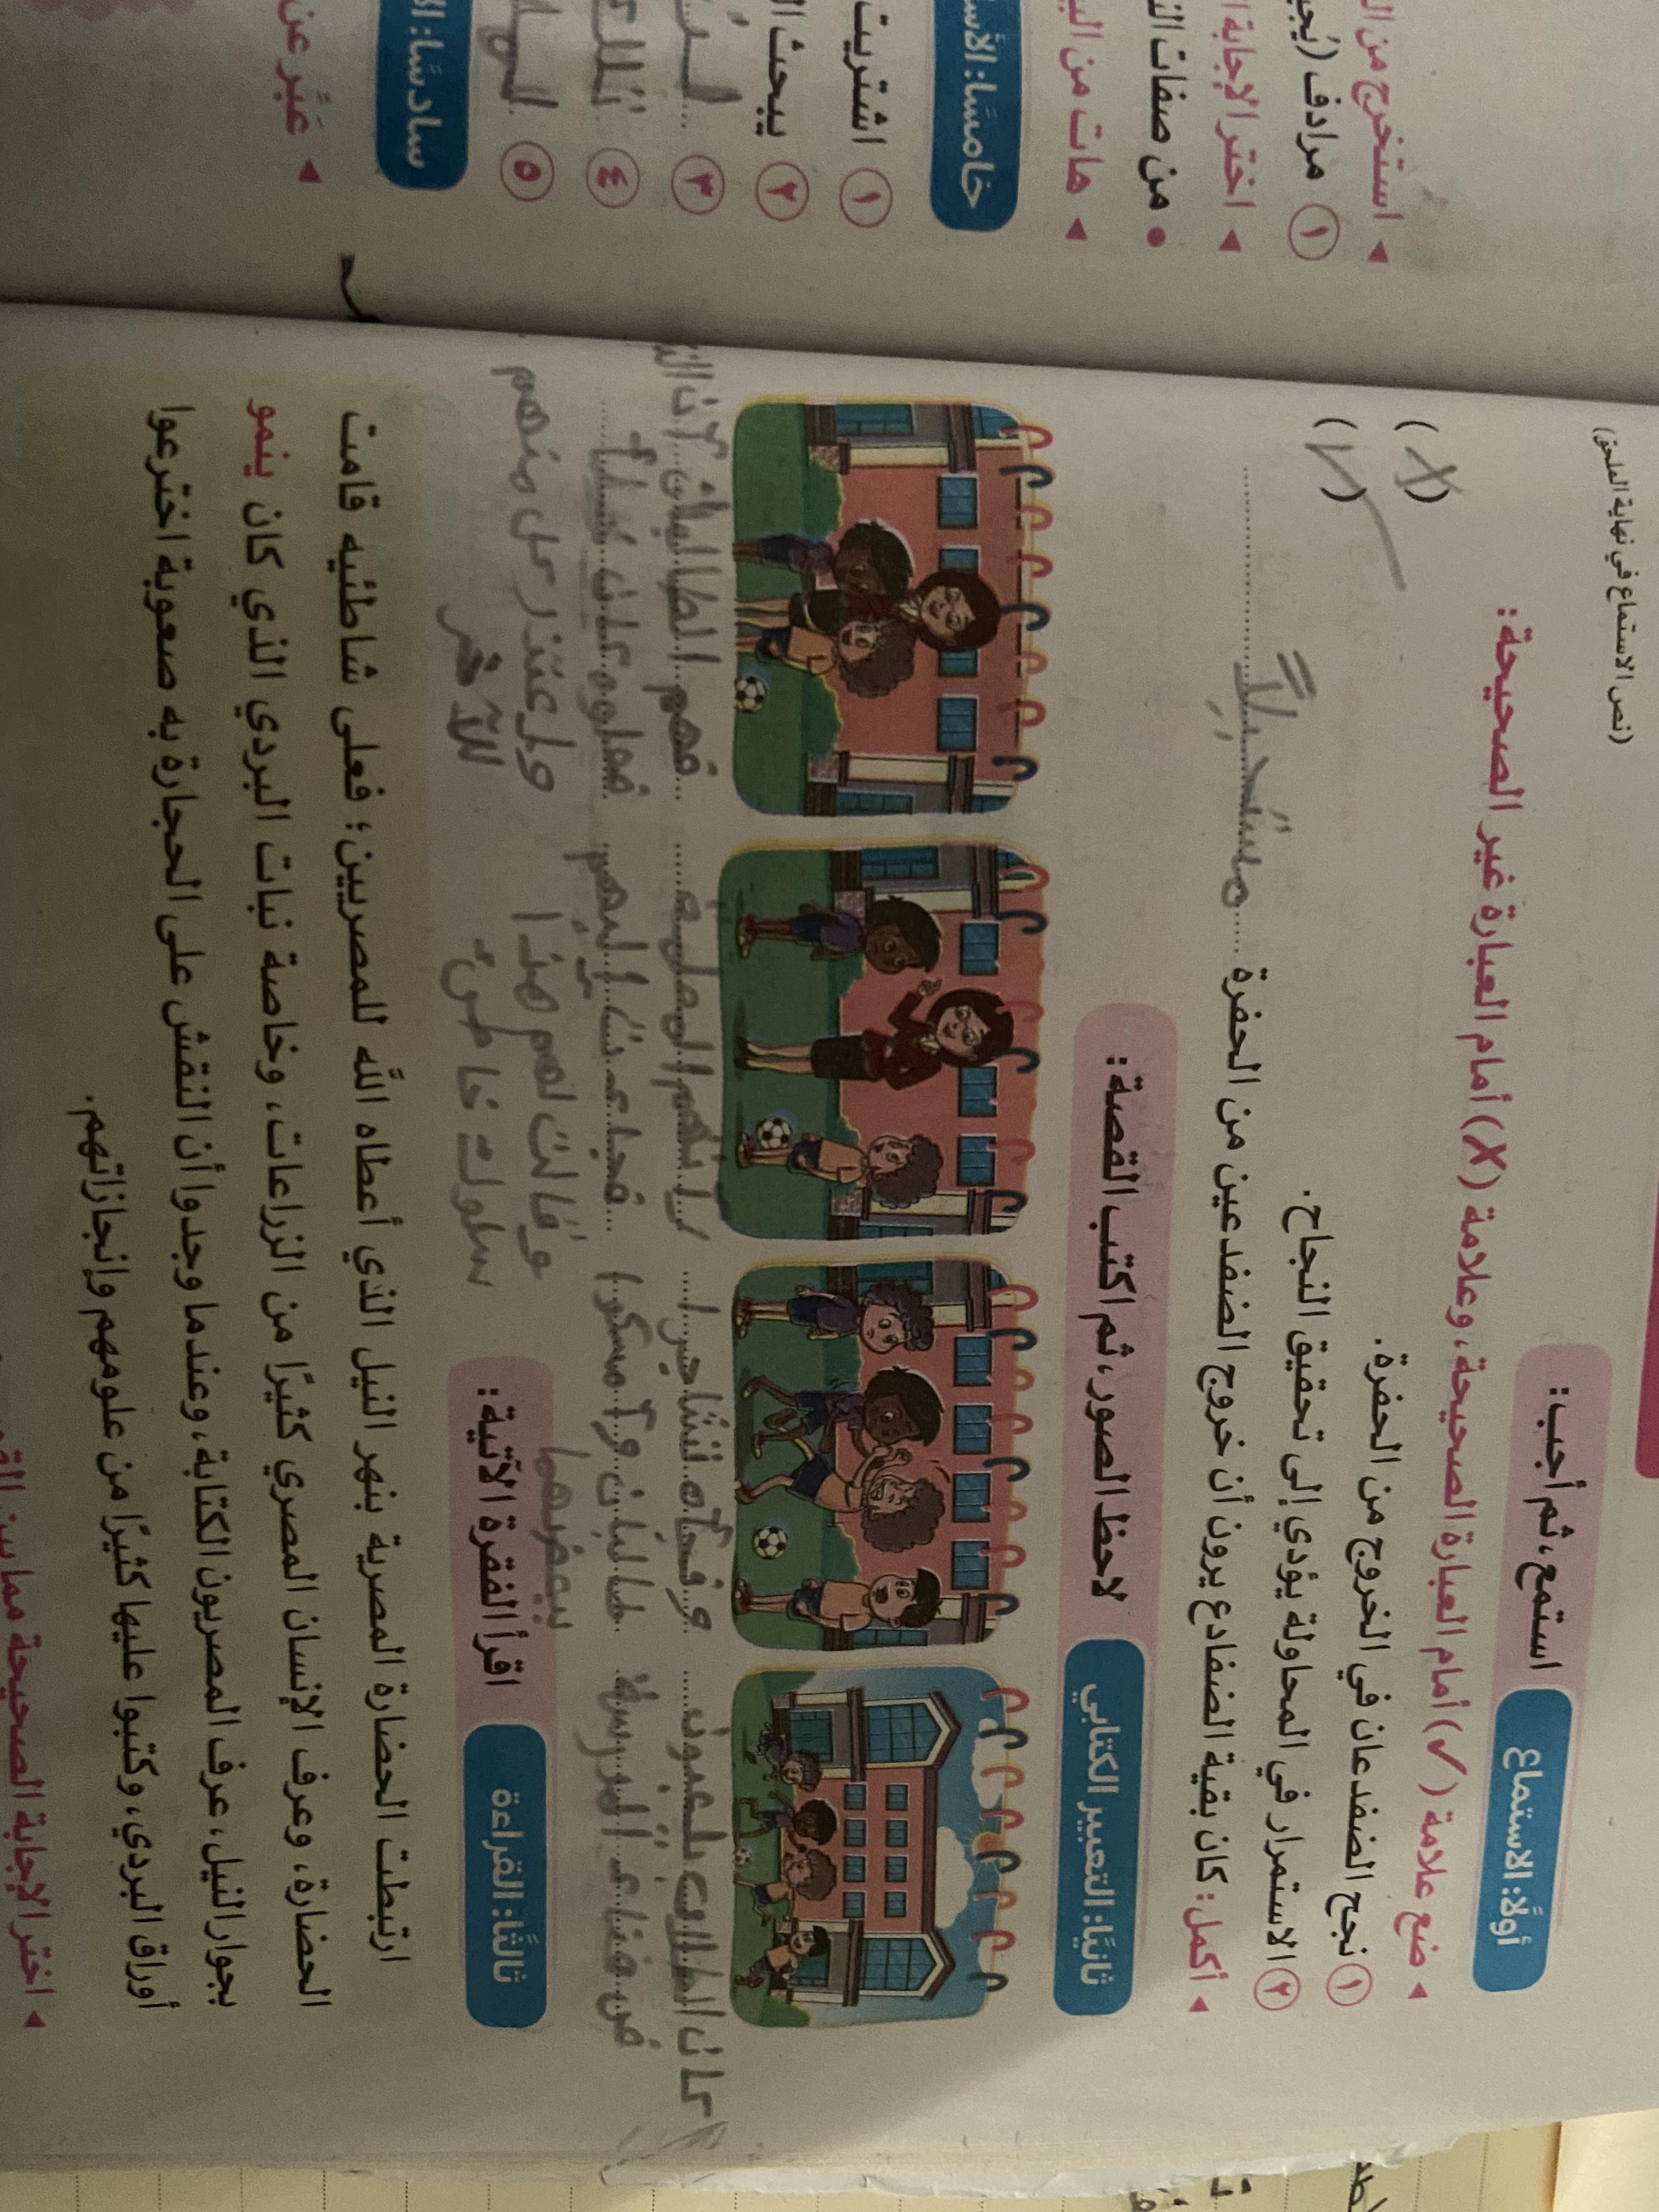 (نص الاستماع في نهاية الملحق)
أولًا: الاستماع
استمع، ثم أجب:
◂ ضع علامة (✓) أمام العبارة الصحيحة، وعلامة (X) أمام العبارة غير الصحيحة:
١ نجح الضفدعان في الخروج من الحفرة. (X)
٢ الاستمرار في المحاولة يؤدي إلى تحقيق النجاح. (✓)
◂ أكمل: كان بقية الضفادع يرون أن خروج الضفدعين من الحفرة مستحيلاً
ثانيًا: التعبير الكتابي
لاحظ الصور، ثم اكتب القصة:
كان الطلاب يلعبون
في فناء المدرسة
وفجأه تشاجرا
طالبان وأمسكوا
ببعضهما
رأتهم المعلمة
فجاءت إليهم
وقالت لهم هذا
سلوك خاطئ
فهم الطالبان أن
فعلوه كان خطأ
واعتذر كل منهم
للآخر
ثالثًا: القراءة
اقرأ الفقرة الآتية:
ارتبطت الحضارة المصرية بنهر النيل الذي أعطاه الله للمصريين؛ فعلى شاطئيه قامت
الحضارة، وعرف الإنسان المصري كثيرًا من الزراعات، وخاصة نبات البردي الذي كان ينمو
بجوار النيل، عرف المصريون الكتابة، وعندما وجدوا أن النقش على الحجارة به صعوبة اخترعوا
أوراق البردي، وكتبوا عليها كثيرًا من علومهم وإنجازاتهم.
◂ اختر الإجابة الصحيحة مما بين
◂ استخرج من
١ مرادف (يُجي
◂ اختر الإجابة
• من صفات
◂ هات من
خامسًا: الأسا
١ اشتريت
٢ يبحث
٣
٤
٥
سادسًا:
◂ عبّر عن